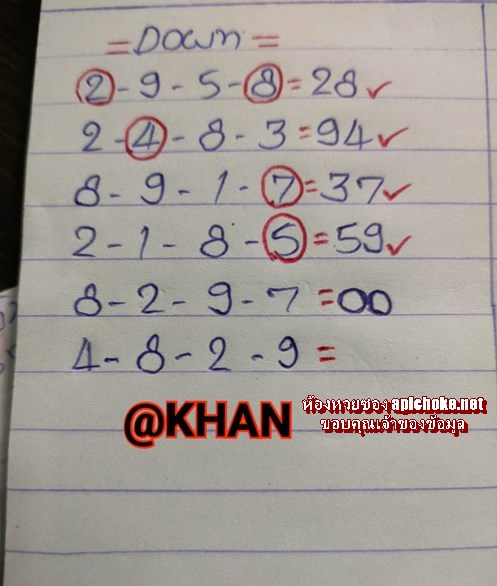 = Down =
2 - 9 - 5 - 8 = 28 ✓
2 - 4 - 8 - 3 = 94 ✓
8 - 9 - 1 - 7 = 37 ✓
2 - 1 - 8 - 5 = 59 ✓
8 - 2 - 9 - 7 = 00
4 - 8 - 2 - 9 =
@KHAN
ห้องหวยซอง apichoke.net
ขอบคุณเจ้าของข้อมูล